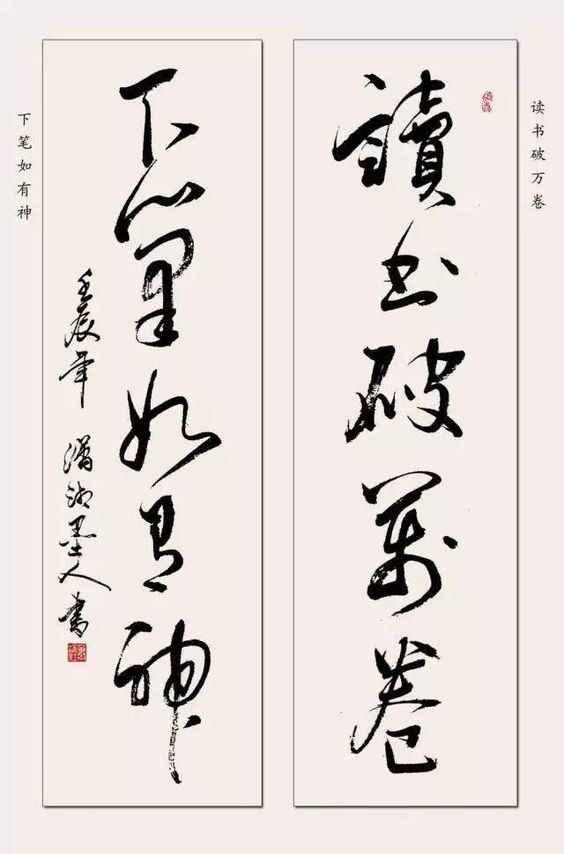 读书破万卷
讀书破萬卷
下筆如有神
壬辰年 瀟湘墨人書
下笔如有神